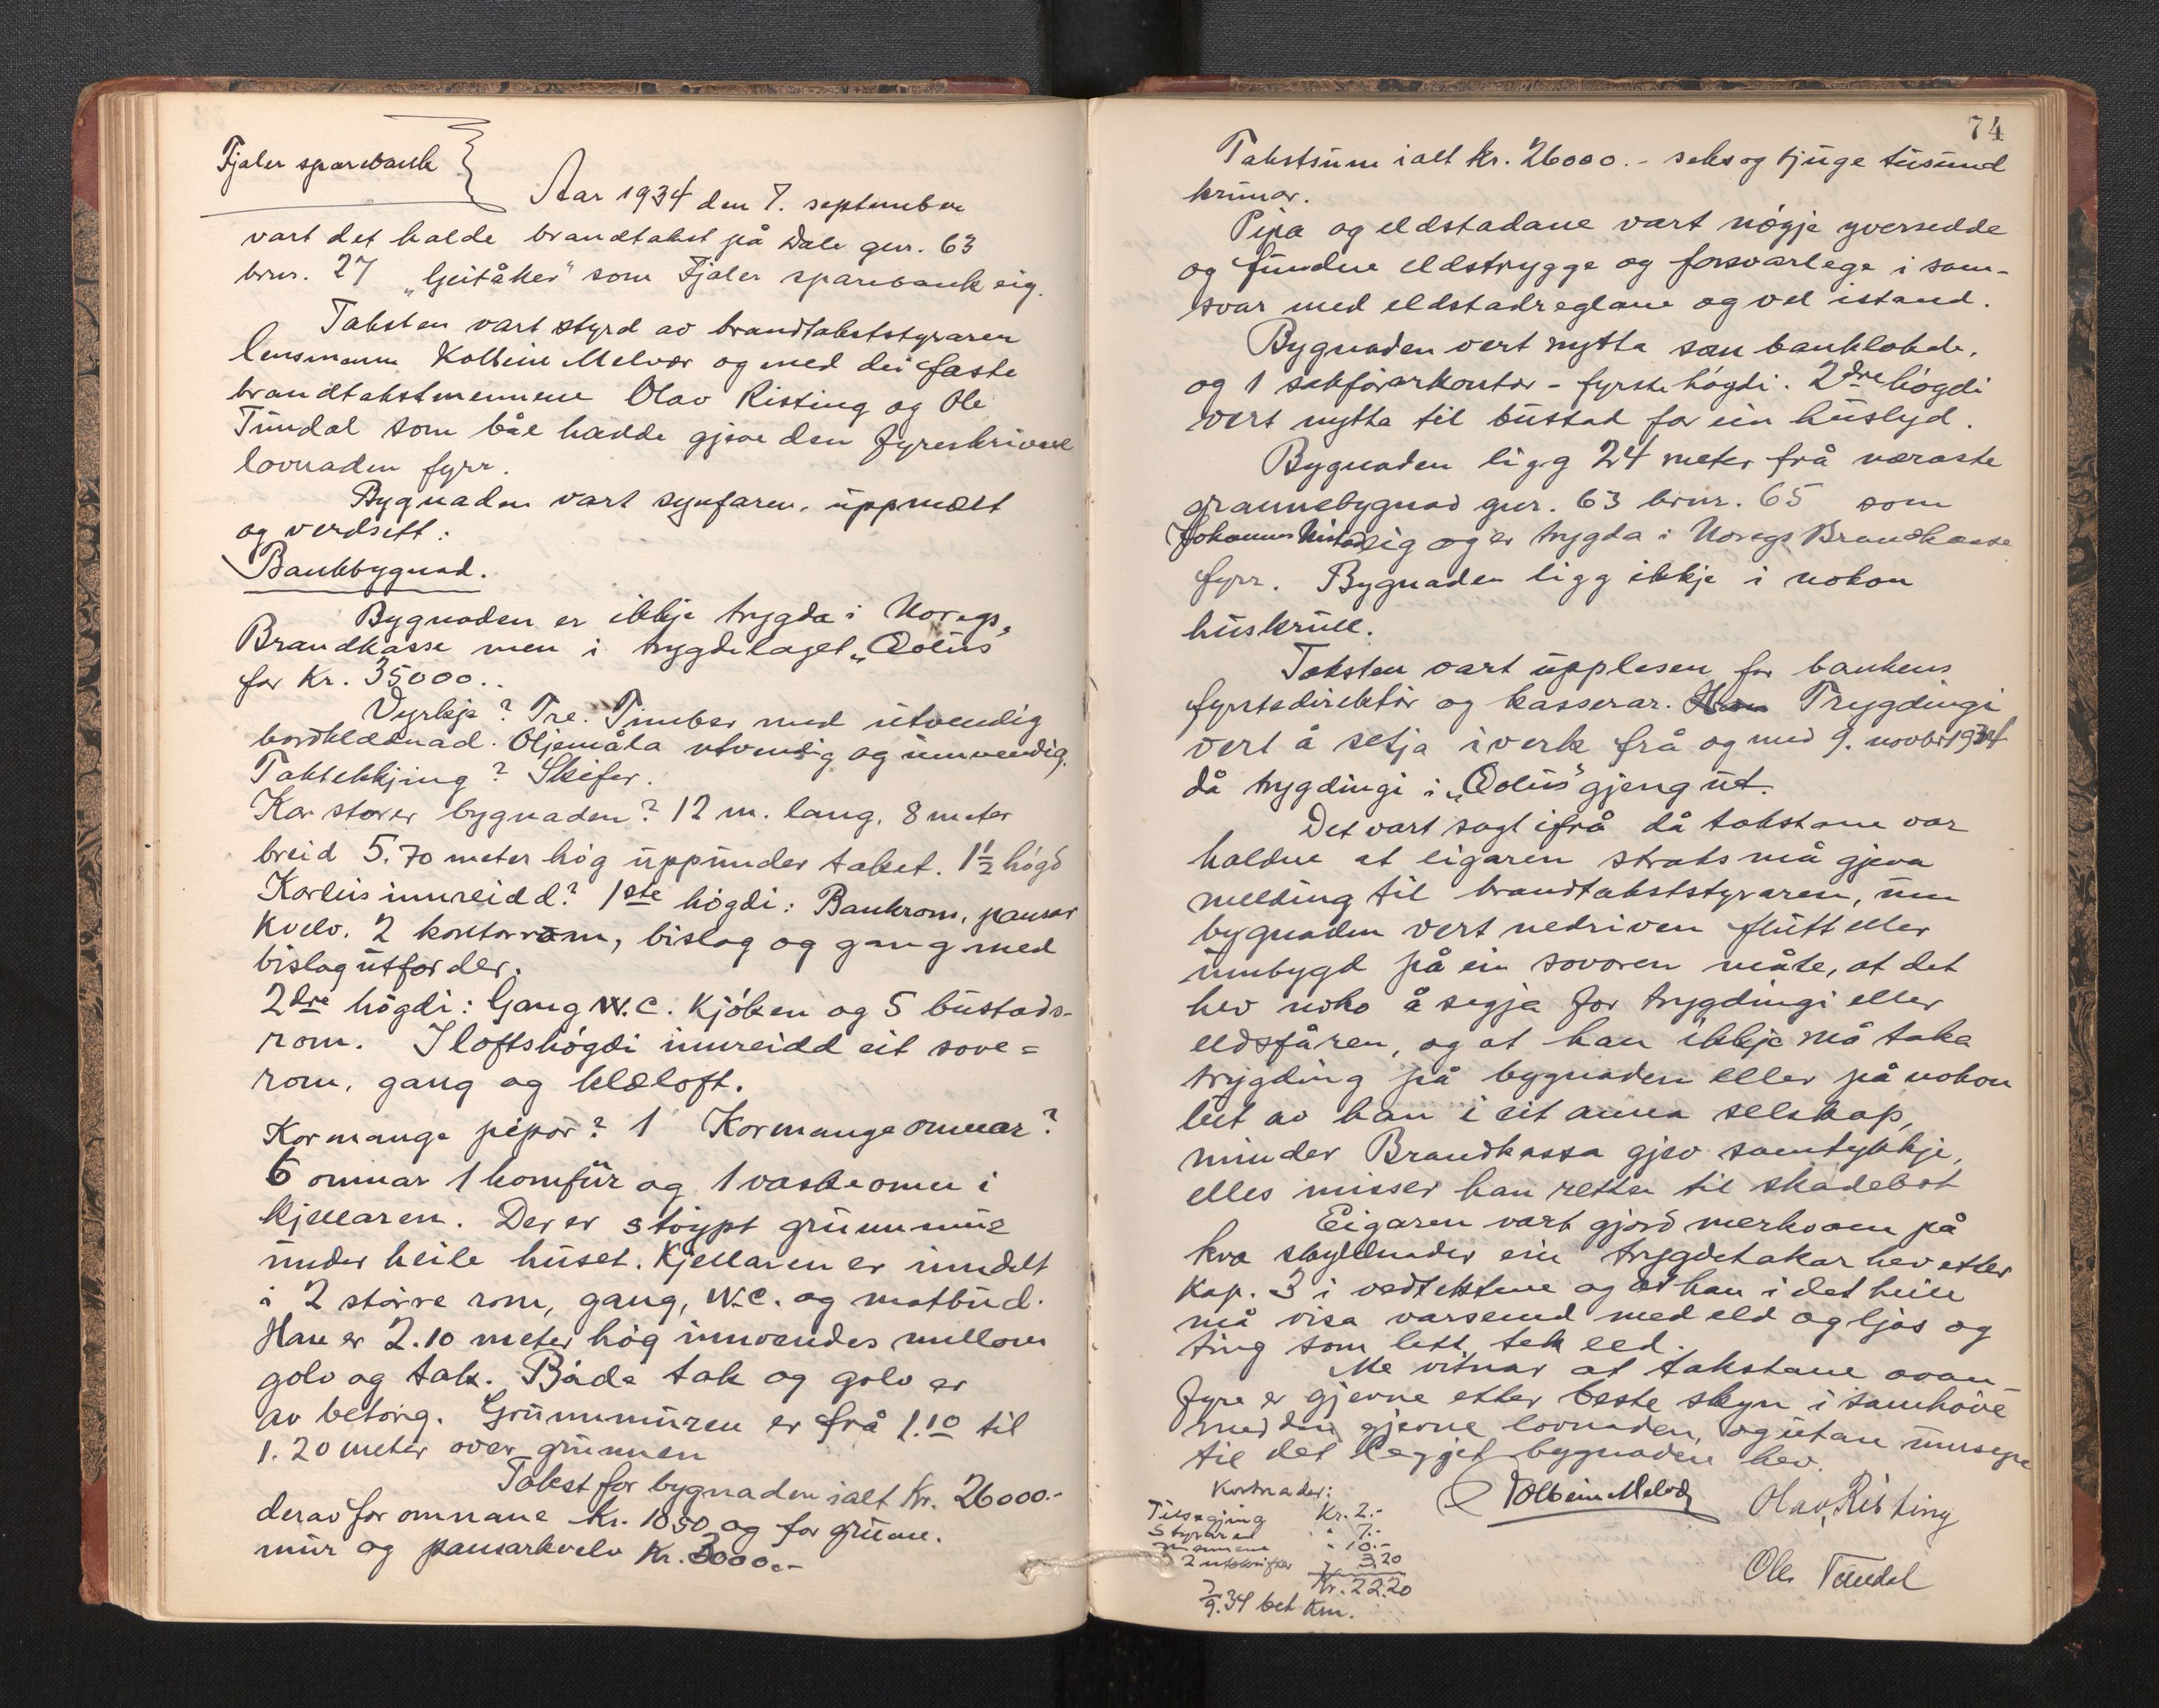 Fjaler sparebank
Aar 1934 den 7. september
vart det halde brandtakst på Dale gnr. 63
brnr. 27 „Geitåker" som Fjaler sparebank eig.
Taksten vart styrd av brandtakststyraren
lensmann Kolbein Melvær og med dei faste
brandtakstmennene Olav Risting og Ole
Tundal som båe hadde gjeve den fyreskrivne
lovnaden fyrr.
Bygnaden vart synfaren, uppmælt
og verdsett:
Bankbygnad.
Bygnaden er ikkje trygda i Noregs
Brandkasse men i trygdelaget „Æolus"
for Kr. 35000..
Vyrkje? Tre. Timber med utvendig
bordklædnad. Oljemåla utvendig og innvendig.
Taktekkjing? Skifer.
Kor stor er bygnaden? 12 m. lang, 8 meter
breid 5.70 meter høg uppunder taket. 1 1/2 høgd
Korleis innreidd? 1ste høgdi: Bankrom, pansar
kvelv. 2 kontorrom, bislag og gang med
bislag utfor der.
2dre høgdi: Gang W.C. Kjøken og 5 bustads-
rom. I loftshøgdi innreidd eit sove=
rom, gang og klæloft.
Kormange pipor? 1 Kormange omnar?
6 omnar 1 komfür og 1 vaskeomn i
kjellaren. Der er støypt grunnmur
under heile huset. Kjellaren er inndelt
i 2 større rom, gang, W.C. og matbud.
Han er 2.10 meter høg innvendes millom
golv og tak. Både tak og golv er
av betong. Grunnmuren er frå 1.10 til
1.20 meter over grunnen
Takst for bygnaden ialt Kr. 26000.-
derav for omnane Kr. 1050 og for grunn.
mur og pansarkvelv Kr. 3000.-
74
Takstsum ialt kr. 26000.- seks og tjuge tusund
krunor.
Pipa og eldstadane vart nøgje yversedde
og fundne eldstrygge og forsvarlege i sam-
svar med eldstadreglane og vel istand.
Bygnaden vert nytta som banklokale,
og 1 sakførarkontor - fyrste høgdi. 2dre høgdi
vert nytta til bustad for ein huslyd.
Bygnaden ligg 24 meter frå næraste
grannebygnad gnr. 63 brnr. 65 som
Johannes eig og er trygda i Noregs Brandkasse
fyrr. Bygnaden ligg ikkje i nokon
huskrull.
Taksten vart upplesen for bankens
fyrstedirektør og kasserar. Trygdingi
vert å setja iverk frå og med 9. novbr 1934
då trygdingi i „Æolus" gjeng ut.
Det vart sagt ifrå då takstane var
haldne at eigaren straks må gjeva
melding til brandtakststyraren, um
bygnaden vert nedriven flutt eller
umbygd på ein sovoren måte, at det
hev noko å segja for trygdingi eller
eldsfåren, og at han ikkje må taka
trygding på bygnaden eller på nokon
lut av han i eit anna selskap,
minder Brandkassa gjev samtykkje,
elles misser han retten til skadebot
Eigaren vart gjord merksam på
kva skyldnader ein trygdetakar hev etter
Kap. 3 i vedtektene og at han i det heile
må visa varsemd med eld og ljos og
ting som lett tek eld.
Me vitnar at takstane ovan-
fyre er gjevne etter beste skyn i samhøve
med den gjevne lovnaden, og utan umsyn
til det legjet bygnaden hev.
Kolbein Melvær Olav Risting
Ole Tundal
Kostnader:
Tilsegjing Kr. 2.-
Styraren " 7.-
Mennene " 10.-
2 utskrifter " 3.20
Kr. 22.20
7/9.34 bet Km.